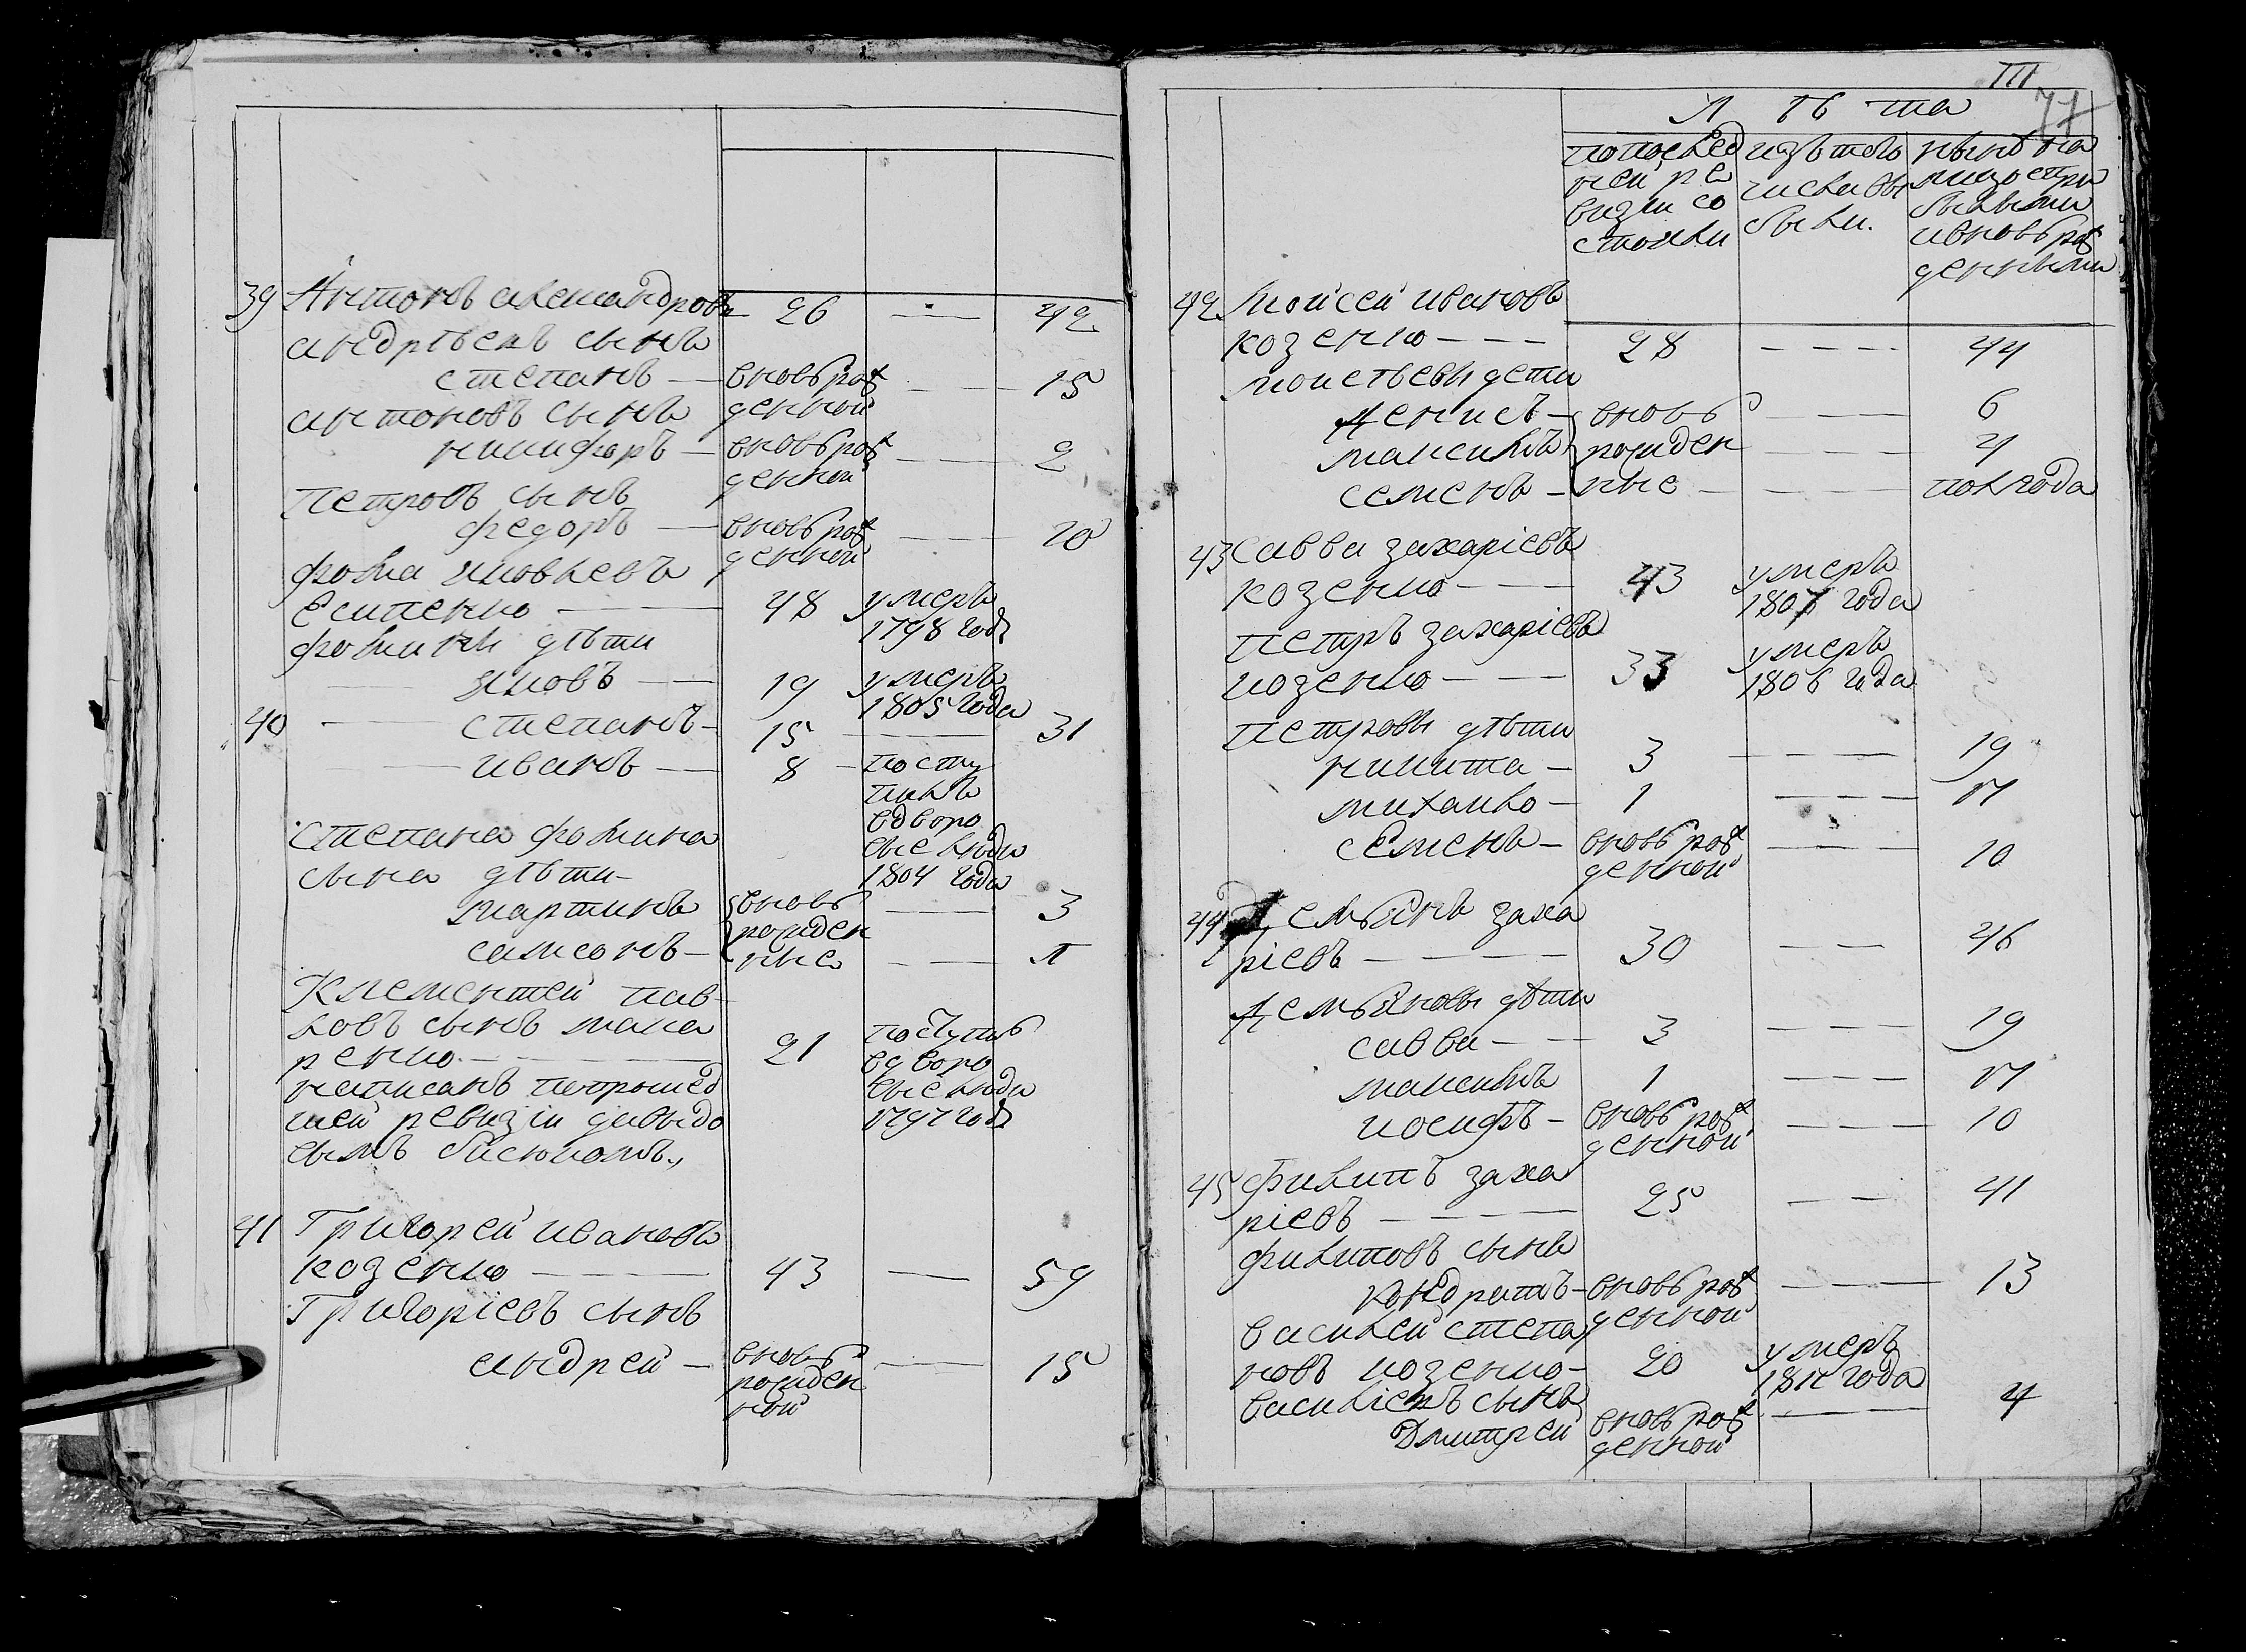 39 Антонъ александровъ — 26 — 42
андрѣевъ сынъ
степанъ — вновь рож 15
антоновъ сынъ денной
никифоръ — вновь рож 2
денной
петровъ сынъ
федоръ — вновь рож 10
денной
фома яковлевъ
Есипенко — 48 умеръ
1798 года
фомины дѣти
яковъ — 19 умеръ
1805 года
40 степанъ — 15 — 31
иванъ — 8 — посту
пилъ
вдворо
вые люди
1804 года
степана фомина
сына дѣти
мартинъ вновь — 3
рожден
самсонъ — ные — 1
Клементей пав
ловъ сынъ мака
ренко — 21 поступилъ
вдворо
вые люди
1797 года
написанъ попрошед
шей ревизіи давыдо
вымъ
41 Григорей ивановъ
козенко — 43 — 59
Григоріевъ сынъ
андрей — вновь — 15
рожден
ной
III
77
Лѣта
попослед
ней ре
визіи со
стояли
изъ того
числа вы
были.
нынѣ на
лицо спри
былыми
ивновь рож
денными
42 Мойсей ивановъ
козенко — 28 — 44
моисѣевы дети
Денисъ — вновь — 6
максимъ рожден — 4
семенъ — ные — полгода
43 Савва захаріевъ
козенко — 43 умеръ
1807 года
петръ захаріевъ
козенко — 33 умеръ
1806 года
петровы дѣти
никита — 3 — 19
михайло — 1 — 17
семенъ — вновь рож — 10
денной
44 Демьянъ заха
ріевъ — 30 — 46
Демьяновы дѣти
савва — 3 — 19
максимъ 1 — 17
иосифъ — вновь рож — 10
денной
45 филипъ заха
ріевъ — 25 — 41
филиповъ сынъ
кондратъ — вновь рож — 13
денной
василей степа
новъ козенко — 20 умеръ
1811 года
василіевъ сынъ
Дмитрей вновь рож — 4
денной